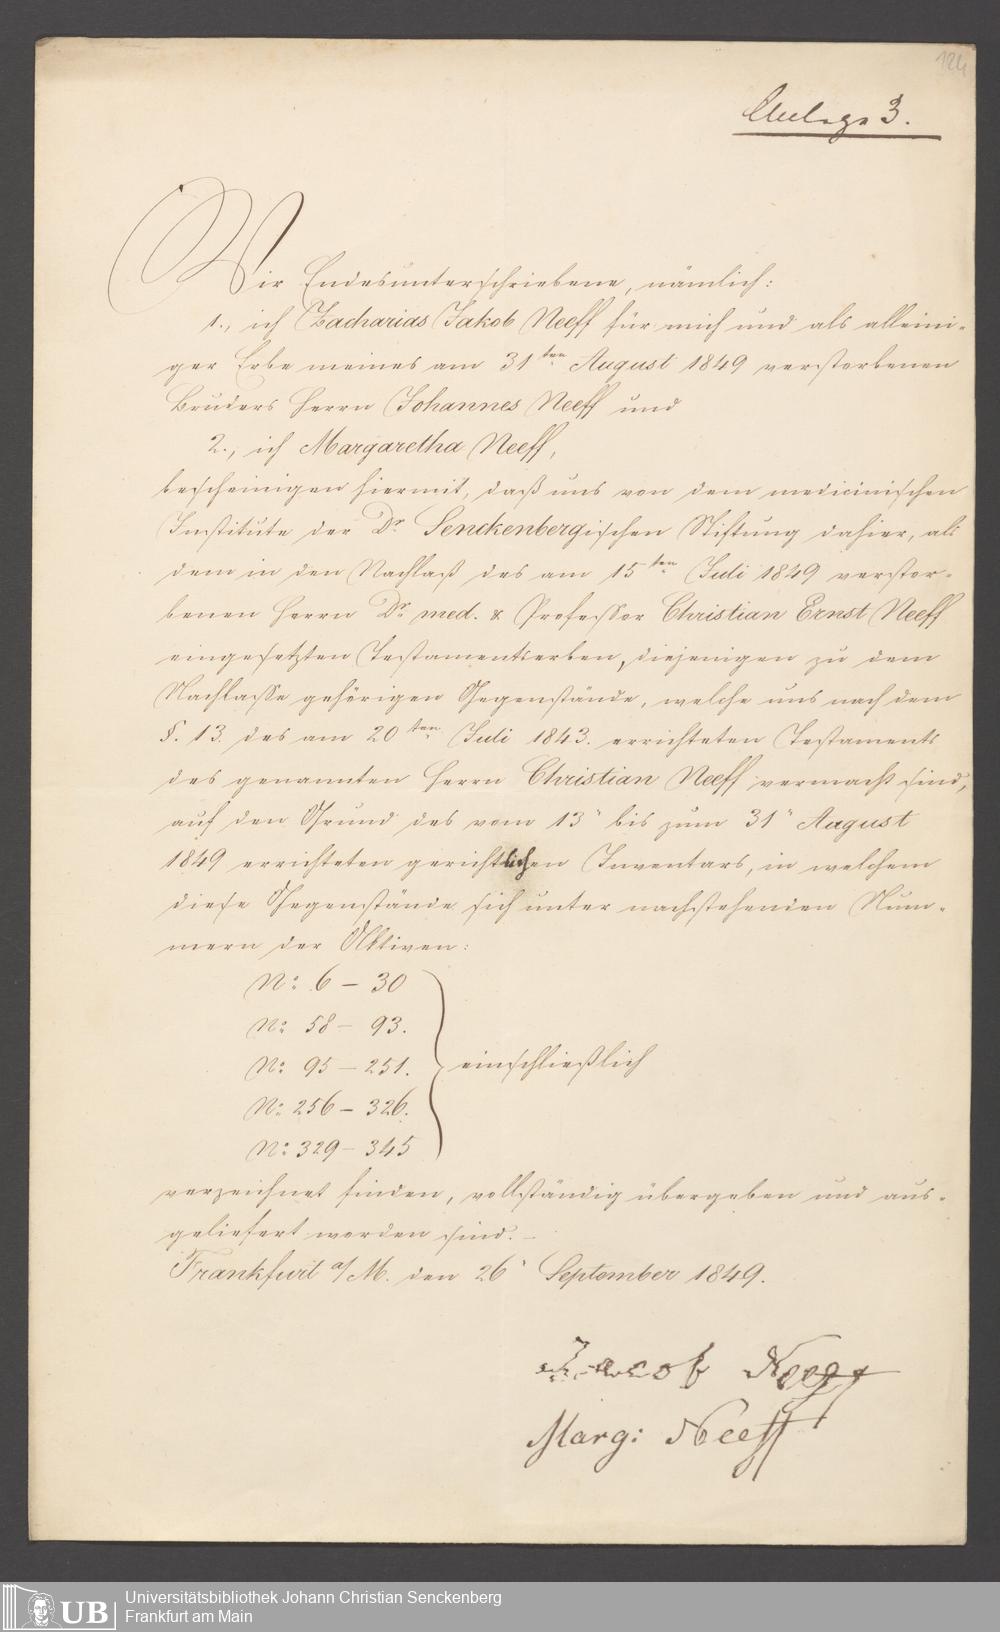 124
Anlage 3.
Wir Endesunterschriebene, nämlich:
1., ich Zacharias Jakob Neeff für mich und als alleini-
ger Erbe meines am 31ten August 1849 verstorbenen
Bruders Herrn Johannes Neeff und
2., ich Margaretha Neeff,
bescheinigen hiermit, daß uns von dem medicinischen
Institute der Dr. Senckenbergischen Stiftung dahier, als
dem in den Nachlaß des am 15ten Juli 1849 verstor-
benen Herrn Dr. med. & Professor Christian Ernst Neeff
eingesetzten Testamentserben, diejenigen zu dem
Nachlasse gehörigen Gegenstände, welche uns nach dem
§. 13. des am 20ten Juli 1843. errichteten Testaments
des genannten Herrn Christian Neeff vermacht sind,
auf den Grund des vom 13" bis zum 31" August
1849 errichteten gerichtlichen Inventars, in welchem
diese Gegenstände sich unter nachstehenden Num-
mern der Aktiven:
No: 6 – 30
No: 58 – 93.
No: 95 – 251. einschließlich
No: 256 – 326.
No: 329 – 345
verzeichnet finden, vollständig übergeben und aus-
geliefert worden sind. –
Frankfurt a/M. den 26" September 1849.
Jacob Neeff
Marg: Neeff
UB
Universitätsbibliothek Johann Christian Senckenberg
Frankfurt am Main